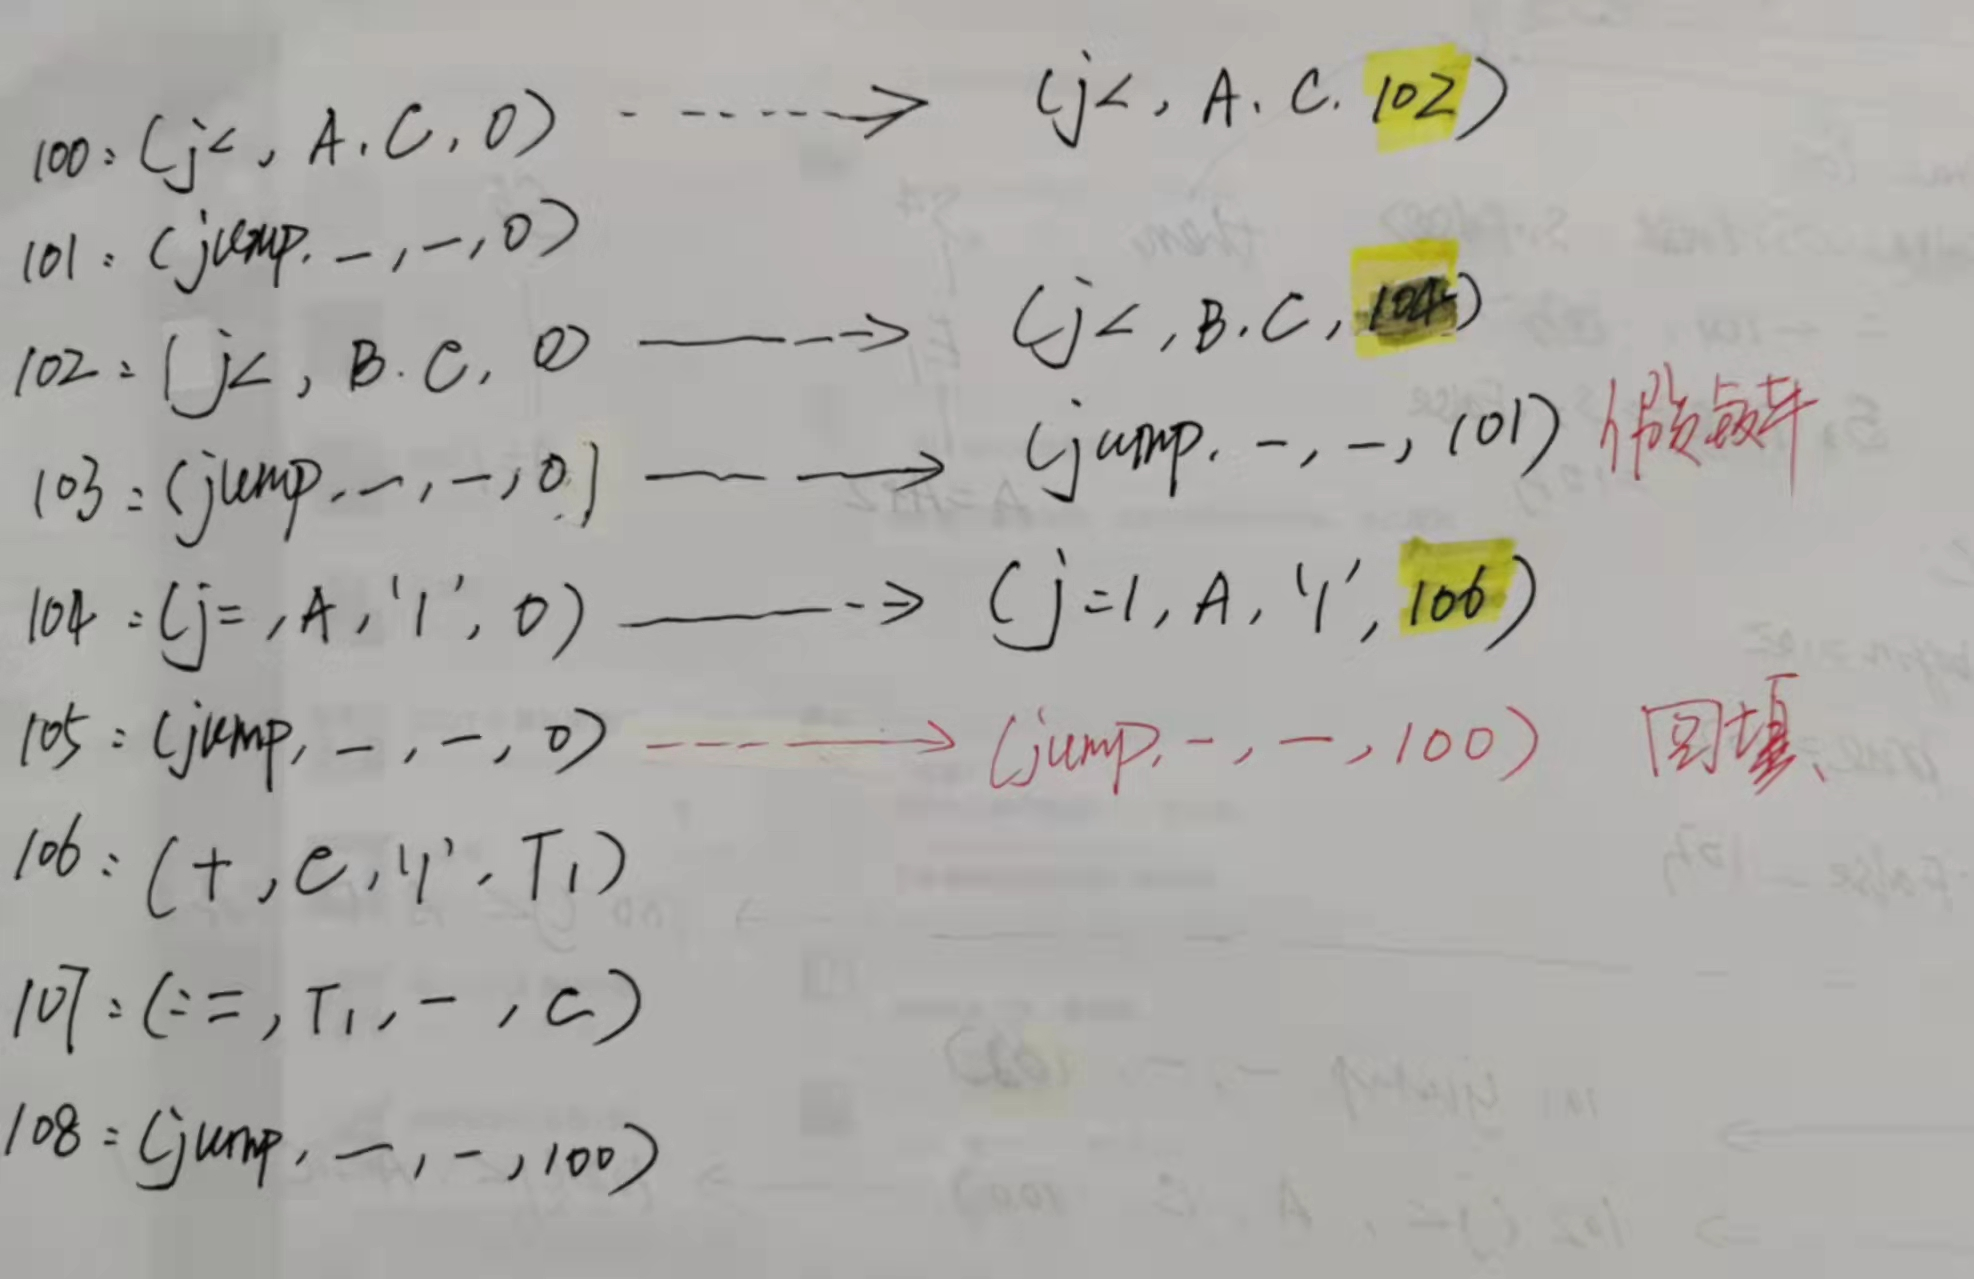 100: (j<, A. C, 0) ----> (j<, A. C. 102)
101: (jump. -, -, 0)
102: (j<, B. C, 0) ----> (j<, B. C, 104)
103: (jump. -, -, 0) ----> (jump. -, -, 101) 假链
104: (j=, A, '1', 0) ----> (j=1, A, '1', 106)
105: (jump, -, -, 0) ----> (jump. -, -, 100) 回填
106: (+, C, '1', T1)
107: (:=, T1, -, C)
108: (jump, -, -, 100)